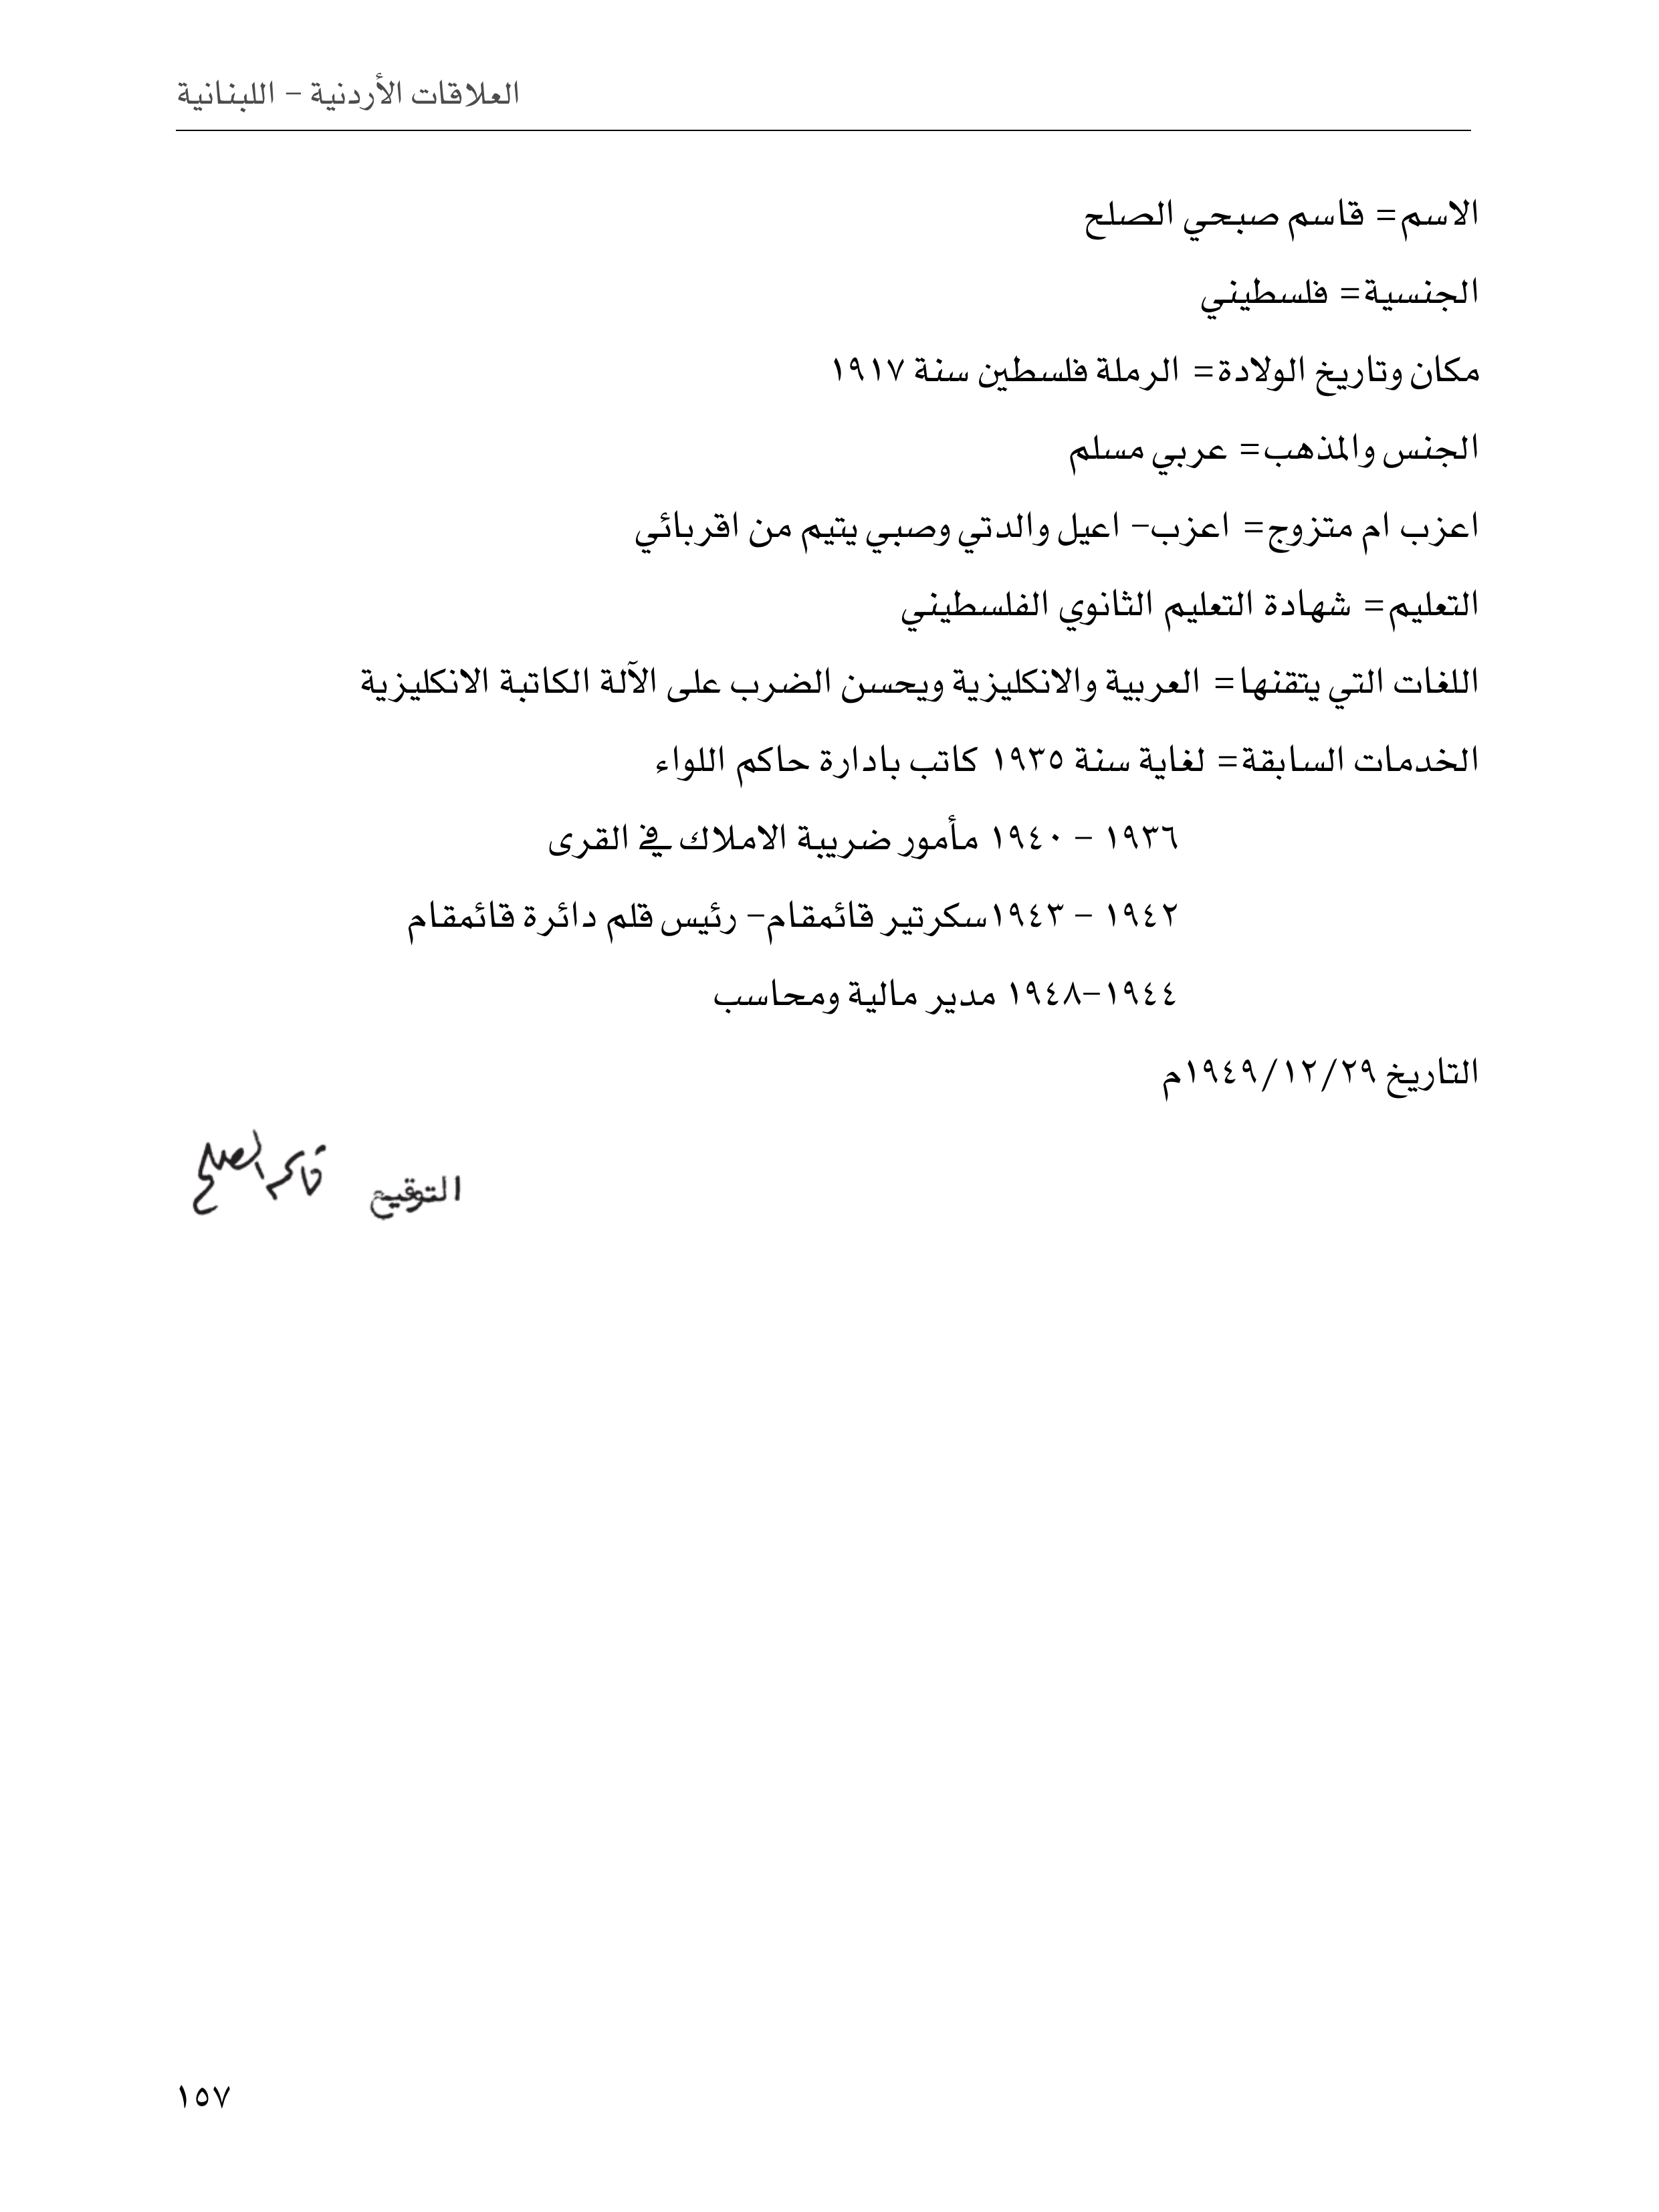 العلاقات الأردنية – اللبنانية
الاسم= قاسم صبحي الصلح
الجنسية= فلسطيني
مكان وتاريخ الولادة= الرملة فلسطين سنة ١٩١٧
الجنس والمذهب= عربي مسلم
اعزب ام متزوج= اعزب– اعيل والدتي وصبي يتيم من اقربائي
التعليم= شهادة التعليم الثانوي الفلسطيني
اللغات التي يتقنها= العربية والانكليزية ويحسن الضرب على الآلة الكاتبة الانكليزية
الخدمات السابقة= لغاية سنة ١٩٣٥ كاتب بادارة حاكم اللواء
١٩٣٦ – ١٩٤٠ مأمور ضريبة الاملاك في القرى
١٩٤٢ – ١٩٤٣سكرتير قائمقام– رئيس قلم دائرة قائمقام
١٩٤٤–١٩٤٨ مدير مالية ومحاسب
التاريخ ١٩٤٩/١٢/٢٩م
التوقيع قاسم الصلح
١٥٧